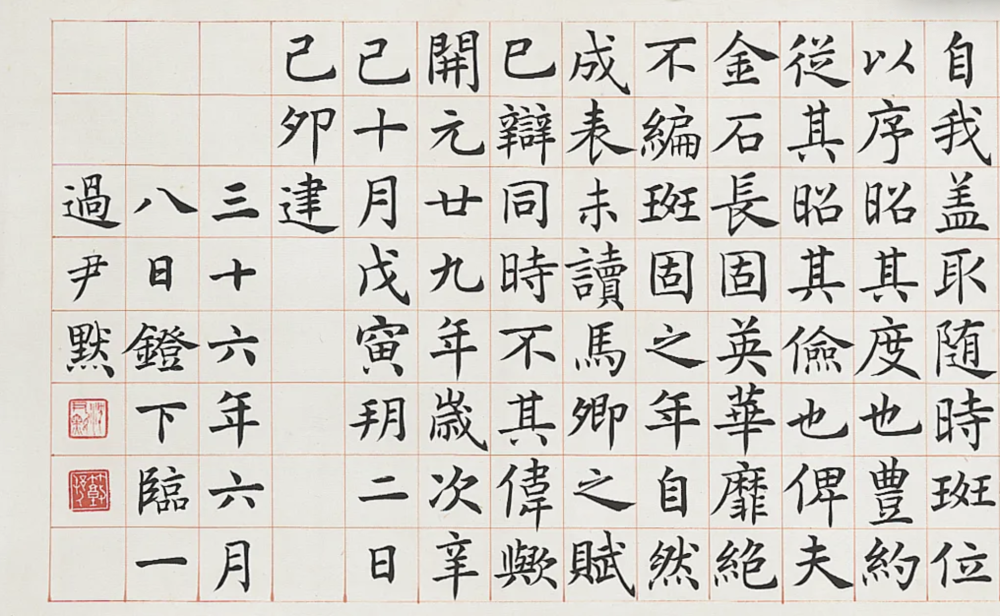 自我盖取随時班位
以序昭其度也豊約
從其昭其儉也俾夫
金石長固英華靡絕
不編班固之年自然
成表未讀馬卿之賦
已辯同時不其偉歟
開元廿九年歲次辛
巳十月戊寅玥二日
己卯建
三十六年六月
八日鐙下臨一
過尹默